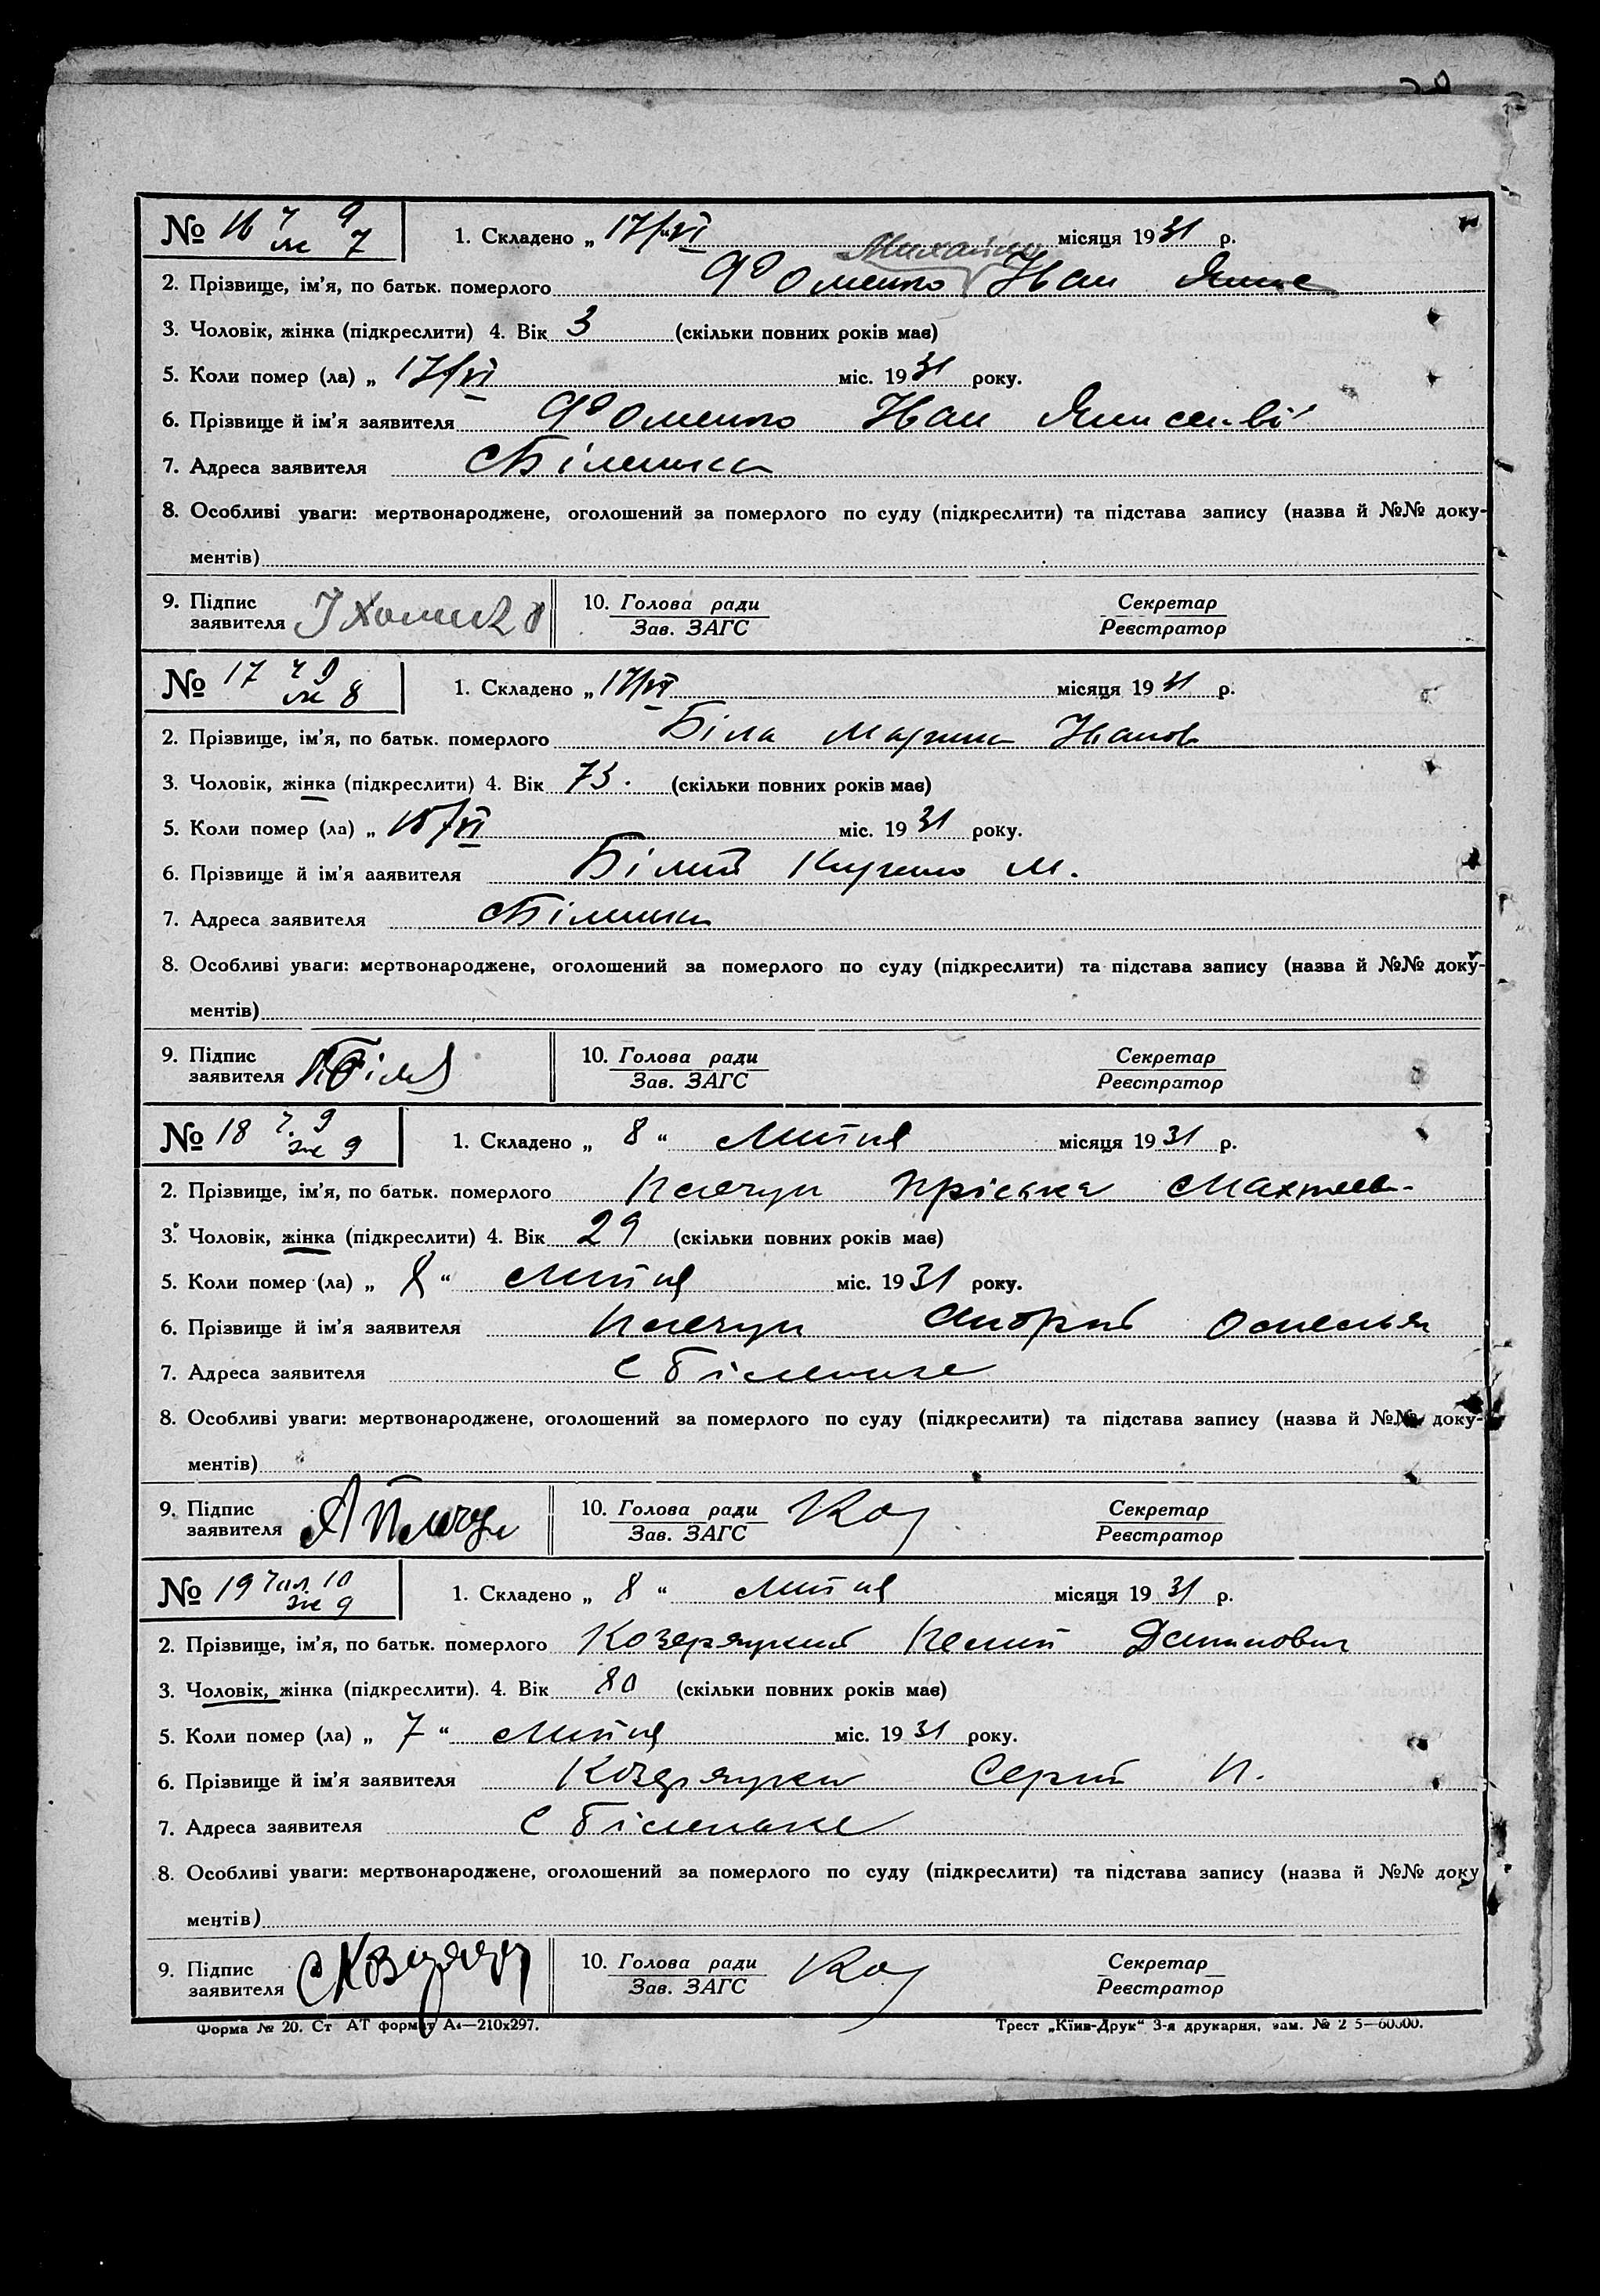 № 16 ч 9
ж 7
1. Складено „ 17/VI місяця 1931 р.
2. Прізвище, ім'я, по батьк. померлого Фоменко Іван
3. Чоловік, жінка (підкреслити) 4. Вік 3 (скільки повних років має)
5. Коли помер (ла) „ 17/VI міс. 1931 року.
6. Прізвище й ім'я заявителя Фоменко Іван
7. Адреса заявителя с Біленьке
8. Особливі уваги: мертвонароджене, оголошений за померлого по суду (підкреслити) та підстава запису (назва й №№ доку-
ментів)
9. Підпис
заявителя
10. Голова ради
Зав. ЗАГС
Секретар
Реєстратор
№ 17 ч 9
ж 8
1. Складено „ 17/VI місяця 1931 р.
2. Прізвище, ім'я, по батьк. померлого Біла Іванов
3. Чоловік, жінка (підкреслити) 4. Вік 73. (скільки повних років має)
5. Коли помер (ла) „ VI міс. 1931 року.
6. Прізвище й ім'я заявителя Білий М.
7. Адреса заявителя с Біленьке
8. Особливі уваги: мертвонароджене, оголошений за померлого по суду (підкреслити) та підстава запису (назва й №№ доку-
ментів)
9. Підпис
заявителя
10. Голова ради
Зав. ЗАГС
Секретар
Реєстратор
№ 18 ч. 9
ж 9
1. Складено „ 8 “ Липня місяця 1931 р.
2. Прізвище, ім'я, по батьк. померлого Пріська
3. Чоловік, жінка (підкреслити) 4. Вік 29 (скільки повних років має)
5. Коли помер (ла) „ 8 “ Липня міс. 1931 року.
6. Прізвище й ім'я заявителя Андрій
7. Адреса заявителя с Біленьке
8. Особливі уваги: мертвонароджене, оголошений за померлого по суду (підкреслити) та підстава запису (назва й №№ доку-
ментів)
9. Підпис
заявителя
10. Голова ради
Зав. ЗАГС
Секретар
Реєстратор
№ 19 чол 10
ж 9
1. Складено „ 8 “ Липня місяця 1931 р.
2. Прізвище, ім'я, по батьк. померлого
3. Чоловік, жінка (підкреслити). 4. Вік 80 (скільки повних років має)
5. Коли помер (ла) „ 7 “ Липня міс. 1931 року.
6. Прізвище й ім'я заявителя Сергій П.
7. Адреса заявителя с Біленьке
8. Особливі уваги: мертвонароджене, оголошений за померлого по суду (підкреслити) та підстава запису (назва й №№ доку
ментів)
9. Підпис
заявителя
10. Голова ради
Зав. ЗАГС
Секретар
Реєстратор
Форма № 20. Ст АТ формат А4—210х297.
Трест „Київ-Друк“ 3-я друкарня, зам. №